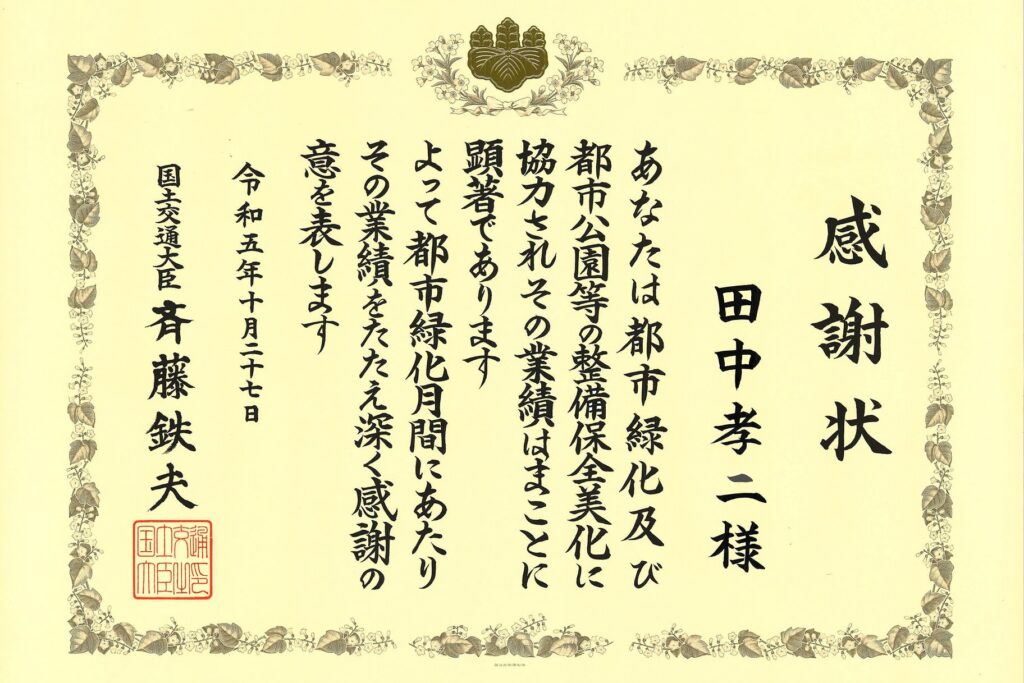 感謝状
田中孝二様
あなたは都市緑化及び
都市公園等の整備保全美化に
協力されその業績はまことに
顕著であります
よって都市緑化月間にあたり
その業績をたたえ深く感謝の
意を表します
令和五年十月二十七日
国土交通大臣 斉藤鉄夫
国土交通
大臣之印